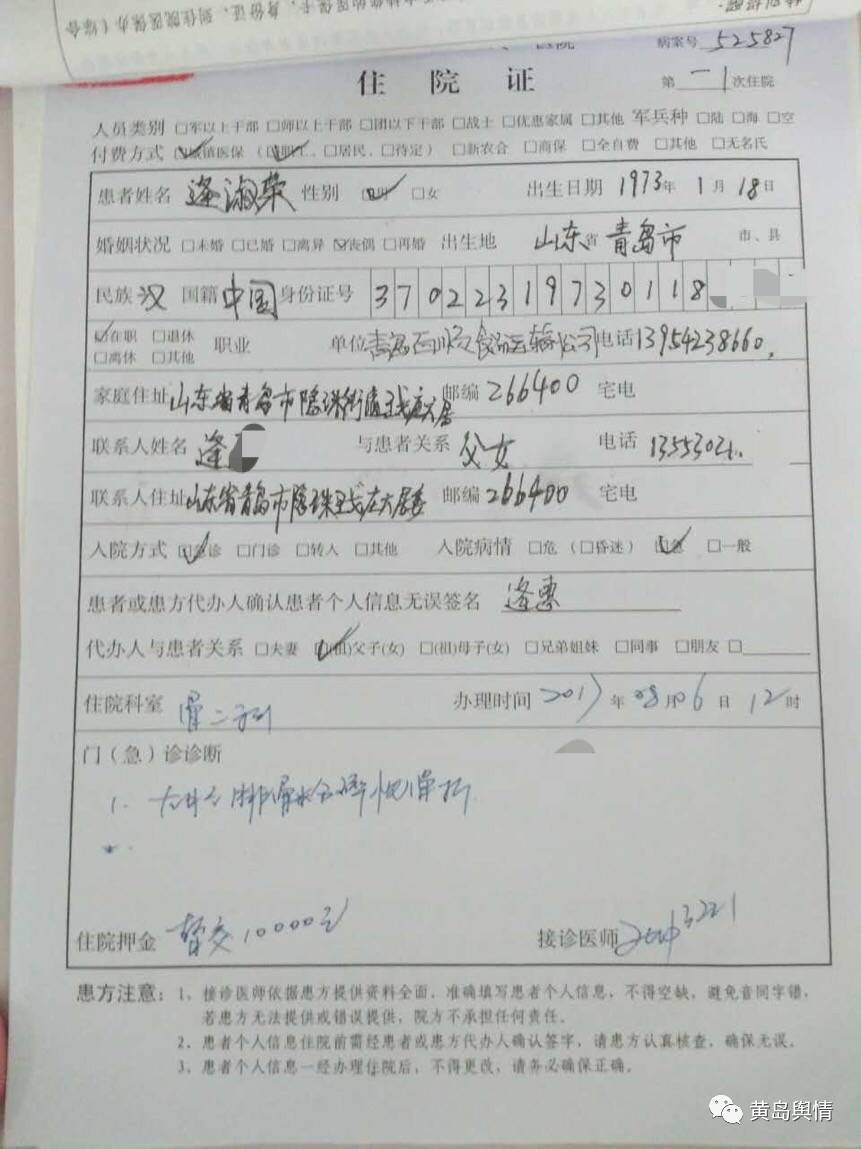 病案号 525827
住院证
第 一 次住院
人员类别 □军以上干部 □师以上干部 □团以下干部 □战士 □优惠家属 □其他 军兵种 □陆 □海 □空
付费方式 城镇医保 (职工、□居民、□待定) □新农合 □商保 □全自费 □其他 □无名氏
患者姓名 逄淑荣 性别 □女 出生日期 1973年 1月 18日
婚姻状况 □未婚 □已婚 □离异 丧偶 □再婚 出生地 山东省 青岛市 市、县
民族 汉 国籍 中国 身份证号 37022319730118
在职 □退休
□离休 □其他 职业 单位 青岛 食品运输公司 电话 13954238660
家庭住址 山东省青岛市隐珠街道 邮编 266400 宅电
联系人姓名 逄 与患者关系 父女 电话 1355302
联系人住址 山东省青岛市隐珠 邮编 266400 宅电
入院方式 急诊 □门诊 □转入 □其他 入院病情 □危 (□昏迷) 急 □一般
患者或患方代办人确认患者个人信息无误签名 逄惠
代办人与患者关系 □夫妻 (祖)父子(女) □(祖)母子(女) □兄弟姐妹 □同事 □朋友 □
住院科室 骨二科 办理时间 2017年 08月 06日 12时
门(急)诊诊断
1.
住院押金 暂交10000元 接诊医师 3221
患方注意: 1、接诊医师依据患方提供资料全面、准确填写患者个人信息,不得空缺,避免音同字错,
若患方无法提供或错误提供,院方不承担任何责任。
2、患者个人信息住院前需经患者或患方代办人确认签字,请患方认真核查,确保无误。
3、患者个人信息一经办理住院后,不得更改,请务必确保正确。
黄岛舆情